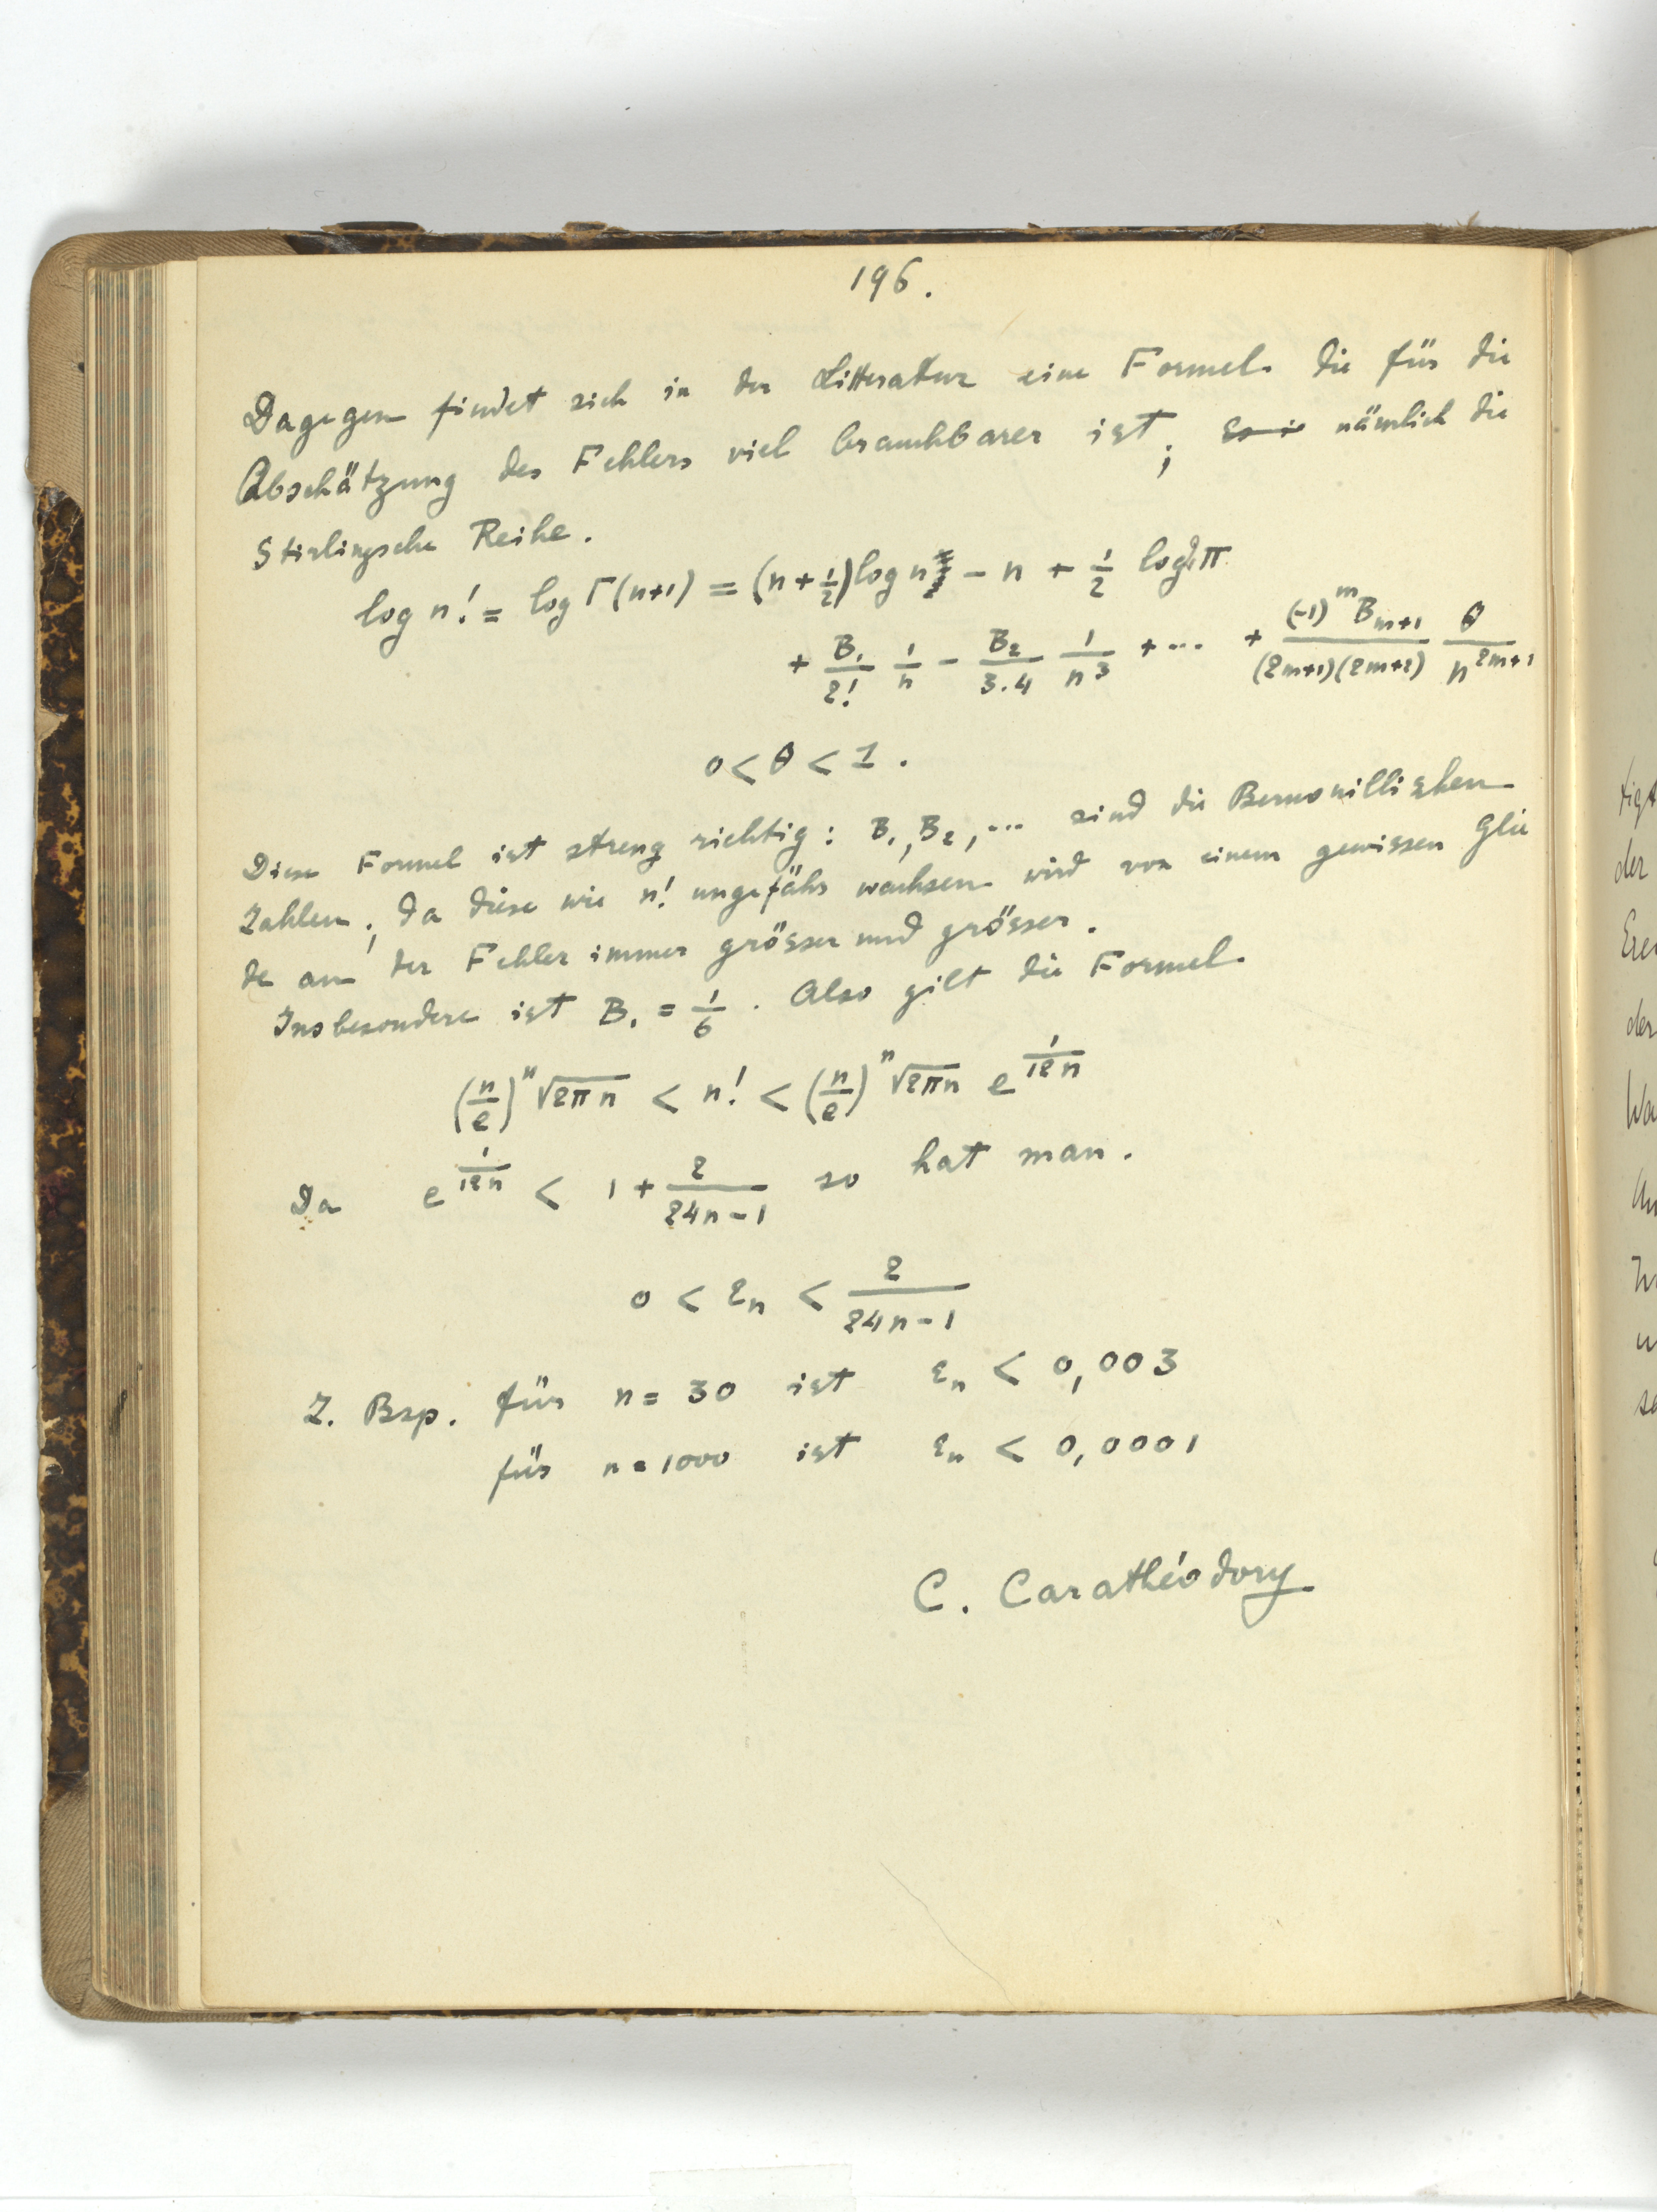 196.
Dagegen findet sich in der Litteratur eine Formel die für die
Abschätzung des Fehlers viel brauchbarer ist; nämlich die
Stirlingsche Reihe.
log n! = log Γ(n+1) = (n+½) log n − n + ½ log 2π
+ B₁/2! 1/n − B₂/3.4 1/n³ + ... + (-1)^m B_{m+1}/(2m+1)(2m+2) θ/n^{2m+1}
0 < θ < 1.
Diese Formel ist streng richtig: B₁, B₂, ... sind die Bernouillischen
Zahlen; da diese wie n! ungefähr wachsen wird von einem gewissen Glie
de an der Fehler immer grösser und grösser.
Insbesondere ist B₁ = 1/6. Also gilt die Formel
(n/e)^n √2πn < n! < (n/e)^n √2πn e^{1/12n}
Da e^{1/12n} < 1 + 2/24n−1 so hat man.
0 < εn < 2/24n−1
Z. Bsp. für n = 30 ist εn < 0,003
für n = 1000 ist εn < 0,0001
C. Carathéodory